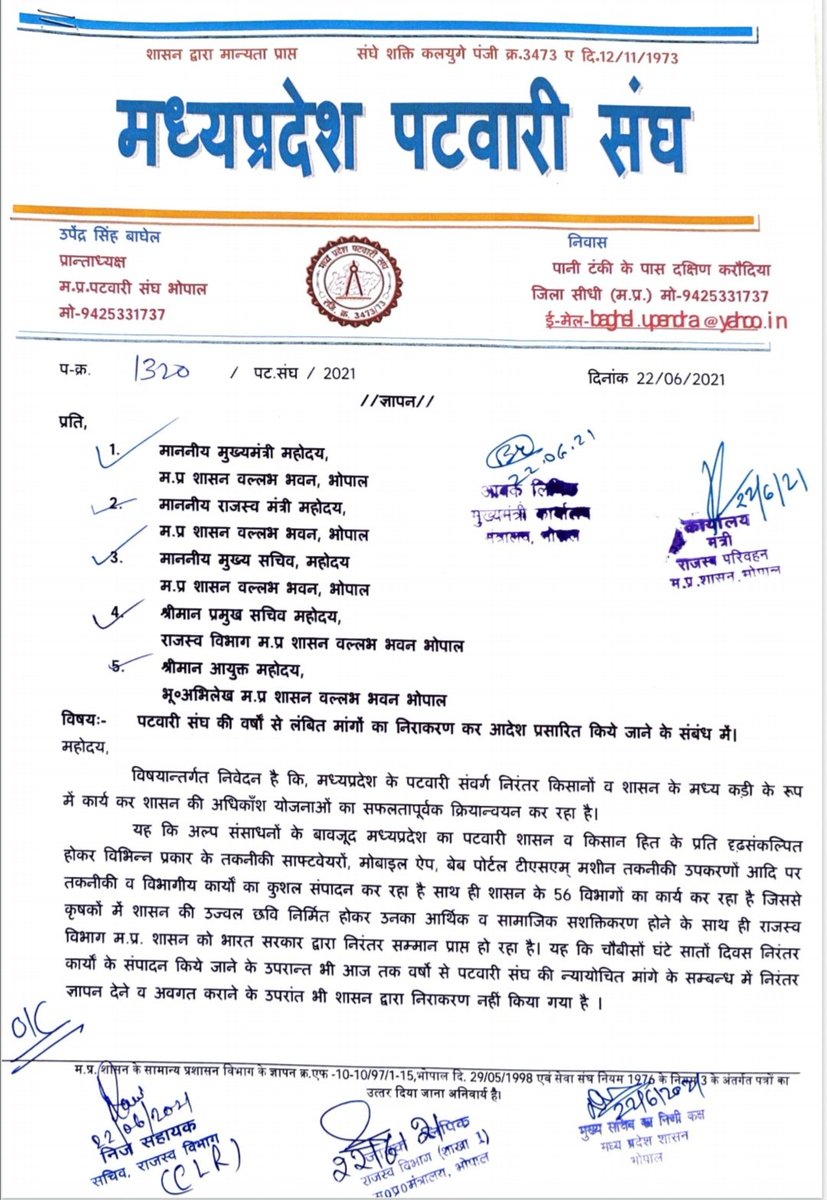 शासन द्वारा मान्यता प्राप्त संघे शक्ति कलयुगे पंजी क्र.3473 ए दि.12/11/1973
मध्यप्रदेश पटवारी संघ
उपेंद्र सिंह बाघेल
प्रान्ताध्यक्ष
म.प्र.पटवारी संघ भोपाल
मो-9425331737
मध्य प्रदेश पटवारी संघ
रजि. क्र. 3473/73
निवास
पानी टंकी के पास दक्षिण करौदिया
जिला सीधी (म.प्र.) मो-9425331737
ई-मेल-baghel.upendra@yahoo.in
प-क्र. 1320 / पट.संघ / 2021 दिनांक 22/06/2021
//ज्ञापन//
प्रति,
1. माननीय मुख्यमंत्री महोदय,
म.प्र शासन वल्लभ भवन, भोपाल
2. माननीय राजस्व मंत्री महोदय,
म.प्र शासन वल्लभ भवन, भोपाल
3. माननीय मुख्य सचिव, महोदय
म.प्र शासन वल्लभ भवन, भोपाल
4. श्रीमान प्रमुख सचिव महोदय,
राजस्व विभाग म.प्र शासन वल्लभ भवन भोपाल
5. श्रीमान आयुक्त महोदय,
भू०अभिलेख म.प्र शासन वल्लभ भवन भोपाल
22.06.21
आवक लिपिक
मुख्यमंत्री कार्यालय
मंत्रालय, भोपाल
22/6/21
कार्यालय
मंत्री
राजस्व परिवहन
म.प्र.शासन.भोपाल
विषयः- पटवारी संघ की वर्षों से लंबित मांगों का निराकरण कर आदेश प्रसारित किये जाने के संबंध में।
महोदय,
विषयान्तर्गत निवेदन है कि, मध्यप्रदेश के पटवारी संवर्ग निरंतर किसानों व शासन के मध्य कड़ी के रूप
में कार्य कर शासन की अधिकाँश योजनाओं का सफलतापूर्वक क्रियान्वयन कर रहा है।
यह कि अल्प संसाधनों के बावजूद मध्यप्रदेश का पटवारी शासन व किसान हित के प्रति दृढ़संकल्पित
होकर विभिन्न प्रकार के तकनीकी साफ्टवेयरों, मोबाइल ऐप, बेब पोर्टल टीएसएम् मशीन तकनीकी उपकरणों आदि पर
तकनीकी व विभागीय कार्यों का कुशल संपादन कर रहा है साथ ही शासन के 56 विभागों का कार्य कर रहा है जिससे
कृषकों में शासन की उज्वल छवि निर्मित होकर उनका आर्थिक व सामाजिक सशक्तिकरण होने के साथ ही राजस्व
विभाग म.प्र. शासन को भारत सरकार द्वारा निरंतर सम्मान प्राप्त हो रहा है। यह कि चौबीसों घंटे सातों दिवस निरंतर
कार्यों के संपादन किये जाने के उपरान्त भी आज तक वर्षो से पटवारी संघ की न्यायोचित मांगे के सम्बन्ध में निरंतर
ज्ञापन देने व अवगत कराने के उपरांत भी शासन द्वारा निराकरण नहीं किया गया है ।
O/C
म.प्र. शासन के सामान्य प्रशासन विभाग के ज्ञापन क्र.एफ -10-10/97/1-15,भोपाल दि. 29/05/1998 एवं सेवा संघ नियम 1976 के नियम 3 के अंतर्गत पत्रों का
उत्तर दिया जाना अनिवार्य है।
22/06/2021
निज सहायक
सचिव, राजस्व विभाग
(CLR)
22/6/21
लिपिक
राजस्व विभाग (शाखा 1)
म०प्र०मंत्रालय, भोपाल
22/6/2021
मुख्य सचिव का निजी कक्ष
मध्य प्रदेश शासन
भोपाल